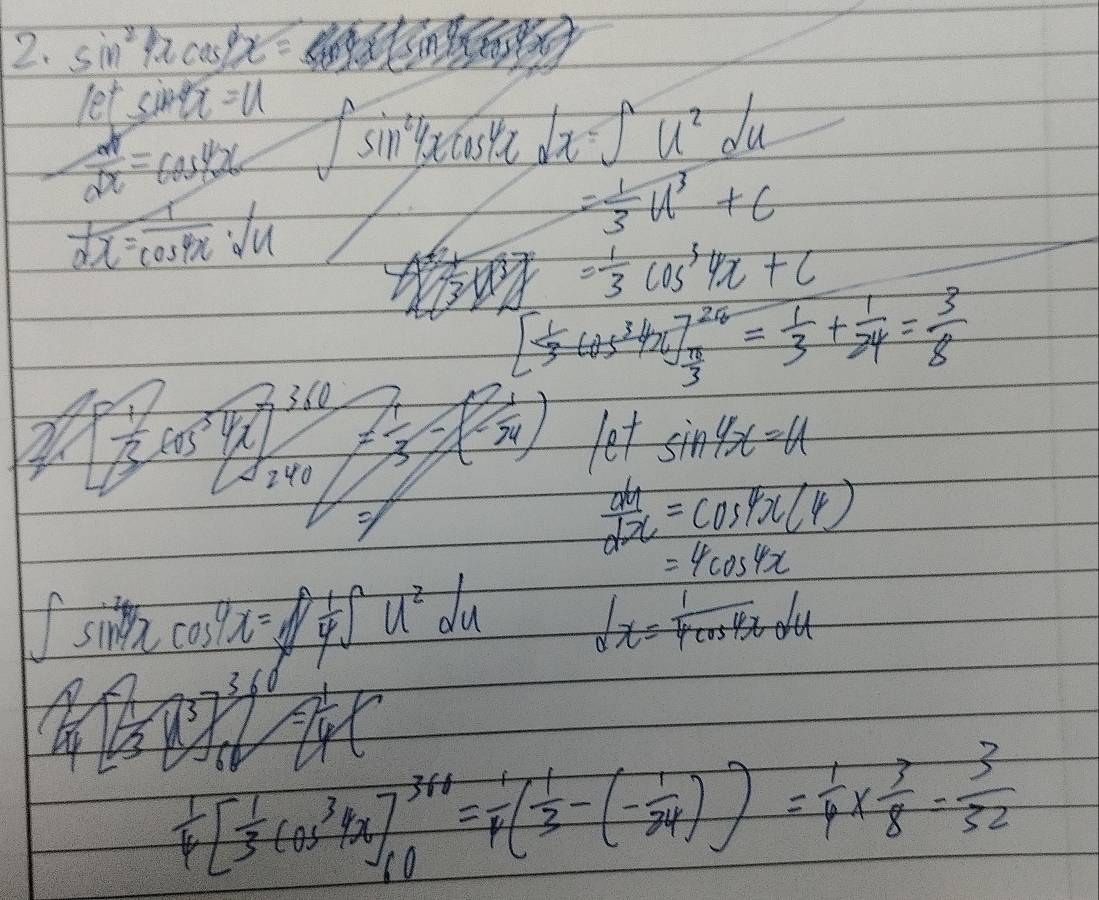 2. sin²4x cos4x =
let sin4x = u
du/dx = cos4x
dx = 1/cos4x · du
∫ sin²4x cos4x dx = ∫ u² du
= 1/3 u³ + c
= 1/3 cos³4x + c
[1/3 cos³4x]_{π/3}^{2π} = 1/3 + 1/24 = 3/8
2. [1/3 cos³4x]_{240}^{360} = 1/3 - (-1/24)
=
let sin4x = u
du/dx = cos4x(4)
= 4cos4x
dx = 1/4cos4x du
∫ sin²4x cos4x = 1/4 ∫ u² du
1/4 [1/3 u³]_{60}^{360} = 1/4 (
1/4 [1/3 cos³4x]_{60}^{360} = 1/4 (1/3 - (-1/24)) = 1/4 × 3/8 = 3/32